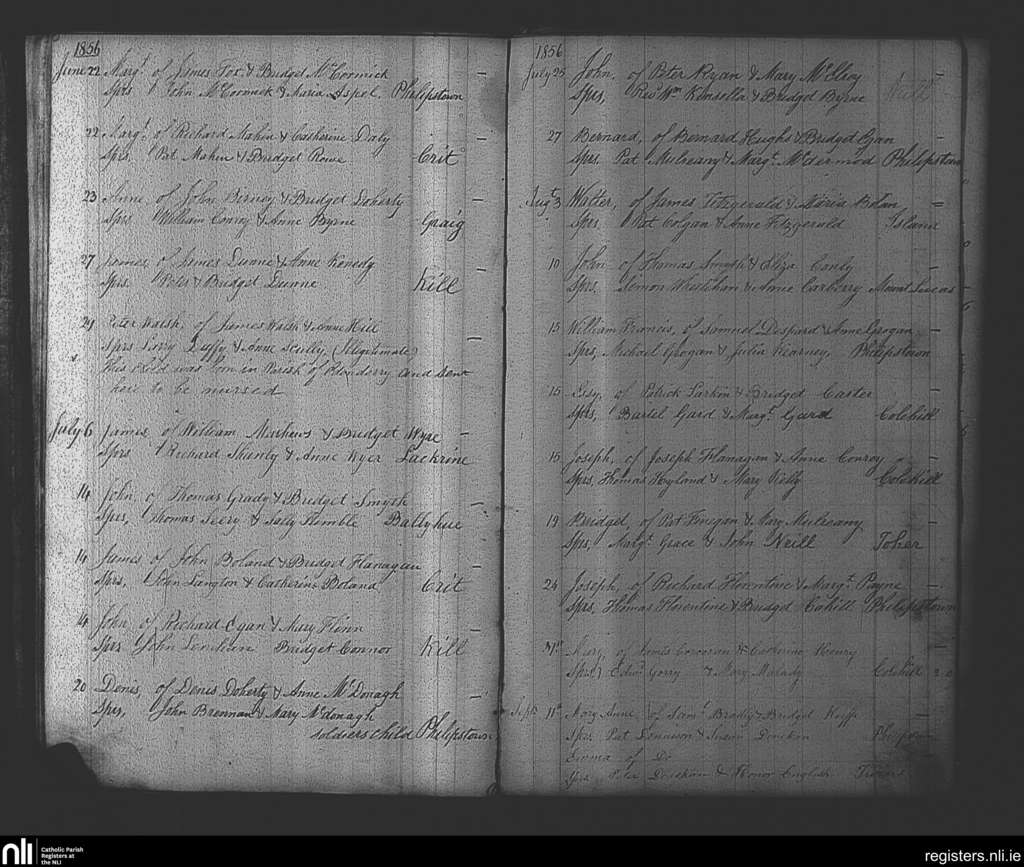 1856
June 22 Margt of James Fox & Bridget McCormick
Sprs John McCormick & Maria Aspel Philipstown
22 Margt of Richard Mahin & Catherine Daly
Sprs Pat Mahin & Bridget Rowe Crit
23 Anne of John Birney & Bridget Doherty
Sprs William Conroy & Anne Byrne Graig
27 James of James Dunne & Anne Kenedy
Sprs Peter & Bridget Dunne Kill
29 Peter Walsh, of James Walsh & Anne Hill
Sprs Duffy & Anne Scully (Illegitimate)
This child was born in Parish of Edenderry and sent
here to be nursed
July 6 James, of William Mathews & Bridget Wyre
Sprs Richard Shanly & Anne Wyer Lackrine
14 John, of Thomas Grady & Bridget Smyth
Sprs, Thomas Seery & Sally Humble Ballyhue
14 James of John Boland & Bridget Flanagan
Sprs, John Langton & Catherine Boland Crit
14 John of Richard Egan & Mary Flinn
Sprs John Bridget Connor Kill
20 Denis, of Denis Doherty & Anne McDonagh
Sprs, John Brennan & Mary McDonagh
soldiers child Philipstown
1856
July 25 John, of Peter Ryan & Mary McElroy
Sprs, Revd Wm Kinsella & Bridget Byrne Kill
27 Bernard, of Bernard Hughs & Bridget Egan
Sprs. Pat Mulreany & Margt McDermod Philipstown
Augt 3 Walter, of James Fitzgerald & Maria Bolan
Sprs, Pat Colgan & Anne Fitzgerald Island
10 John of Thomas Smyth & Eliza Conly
Sprs. Simon & Anne Carberry Mount Lucas
15 William Francis, of Samuel Despard & Anne Grogan
Sprs, Michael Grogan & Julia Kearney, Philipstown
15 Essy, of Patrick Larkin & Bridget Caster
Sprs, Bartel Gard & Margt Gard Colehill
15 Joseph, of Joseph Flanagan & Anne Conroy
Sprs, Thomas Hyland & Mary Kelly Colehill
19 Bridged, of Pat Finegan & Mary Mulreany
Sprs, Margt Grace & John Neill Toher
24 Joseph, of Richard Florentine & Margt Payne
Sprs, Thomas Florentine & Bridget Cahill Philipstown
31st Mary of James Corcoran & Catherine Henry
Sprs, Edwd Gorry & Mary Malady Colehill
Sept 11th Mary Anne, of Saml Bradly & Bridget Keiffe
Sprs Pat Donavon & Susan Philipstown
Emma of Do
Sprs Peter & Honor English Twins
nli
Catholic Parish
Registers at
the NLI
registers.nli.ie